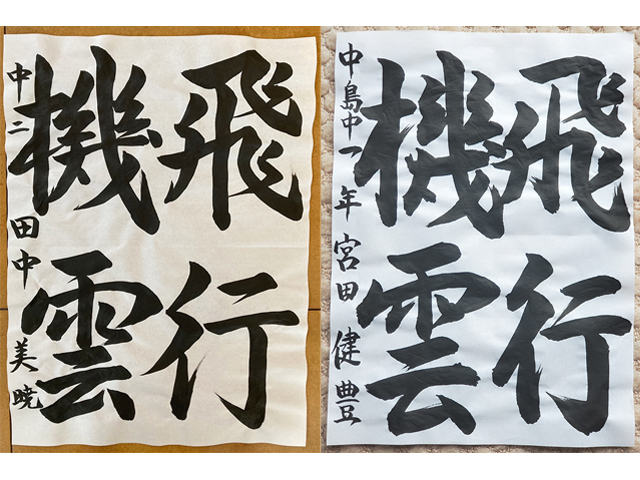 飛行
機雲
中二 田中美暁
飛行
機雲
中島中一年 宮田健豊